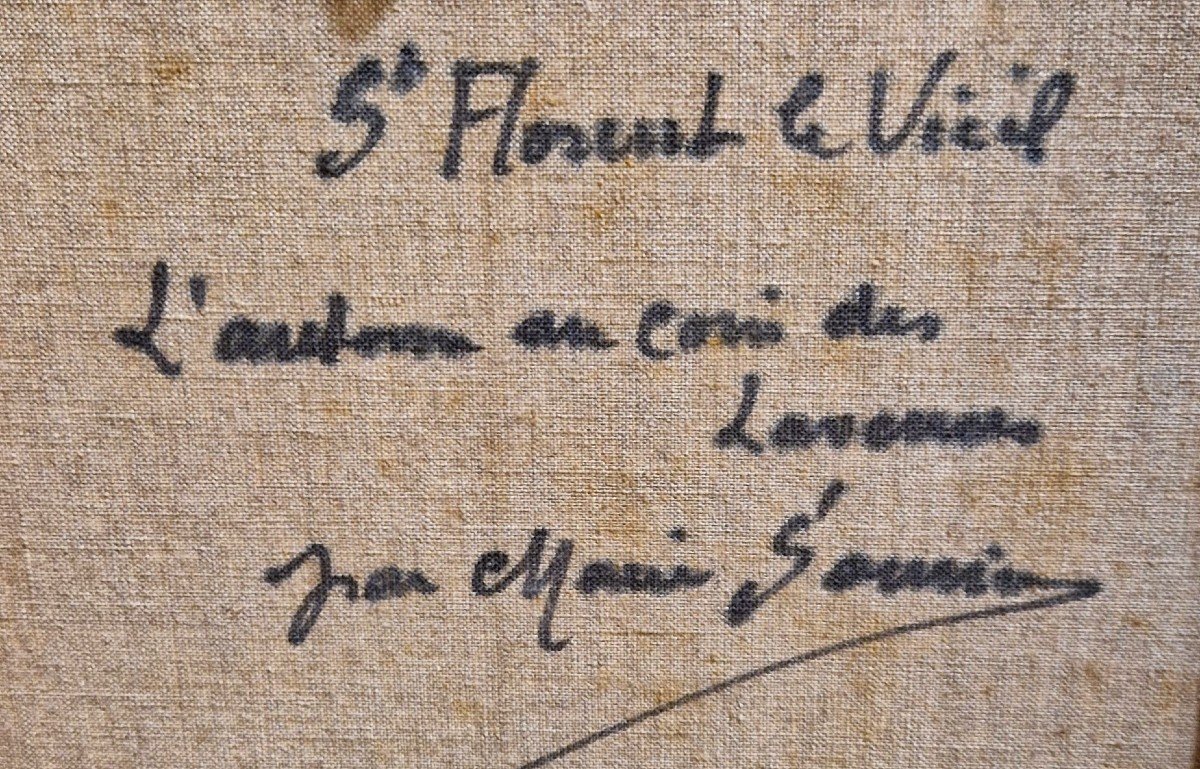 St Florent le Vieil
L'autom au coin des
Laveuses
Jean Marie Saunier